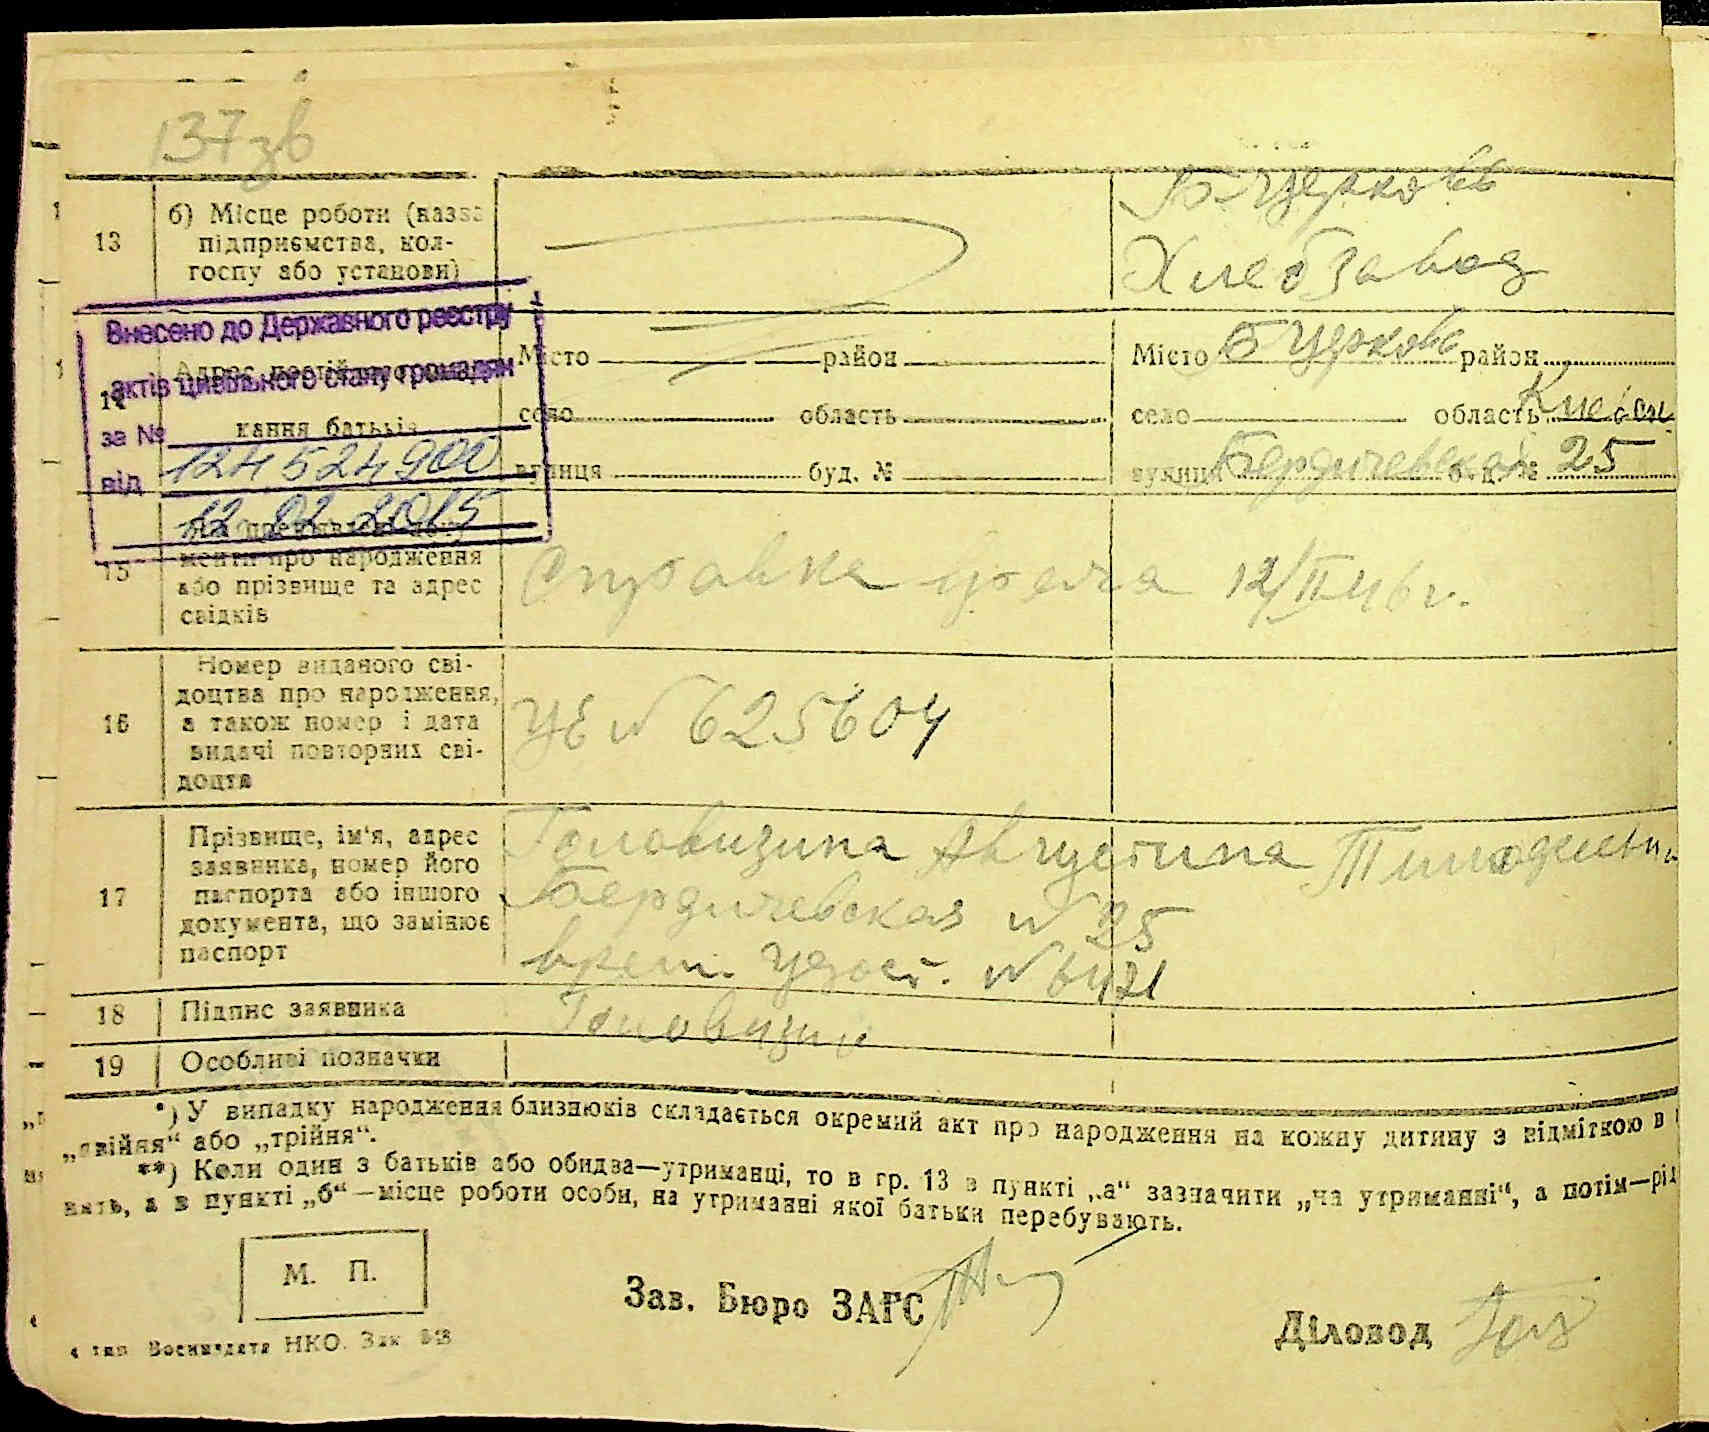 137 зв
13
б) Місце роботи (назва
підприємства, кол-
госпу або установи)
Б-Церковь
Хлебзавод
Внесено до Державного реєстру
актів цивільного стану громадян
за №
124 524 900
від
12.02.2015
14
кання батьків
Місто район
село область
вулиця буд. №
Місто Б Церковь район
село область Киевск
вулиця Бердичевская буд. № 25
15
менти про народження
або прізвище та адрес
свідків
Справка 12/II 46 г.
16
Номер виданого сві-
доцтва про народження,
а також номер і дата
видачі повторних сві-
доцтв
УЕ № 625604
17
Прізвище, ім'я, адрес
заявника, номер його
паспорта або іншого
документа, що замінює
паспорт
Головизина Августина
Бердичевская № 25
врем. удост. № 6421
18 Підпис заявника
Головизин
19 Особливі позначки
*) У випадку народження близнюків складається окремий акт про народження на кожну дитину з відміткою в
„двійня“ або „трійня“.
**) Коли один з батьків або обидва—утриманці, то в гр. 13 в пункті „а“ зазначити „на утриманні“, а потім—рід
нять, а в пункті „б“—місце роботи особи, на утриманні якої батьки перебувають.
М. П.
Зав. Бюро ЗАГС
Діловод
4 тип Воениздата НКО. Зак